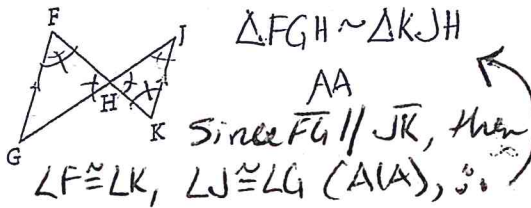 F
J
H
K
G
△FGH ~ △KJH
AA
Since F̅G̅ // J̅K̅, then
∠F ≅ ∠K, ∠J ≅ ∠G (AIA), ∴